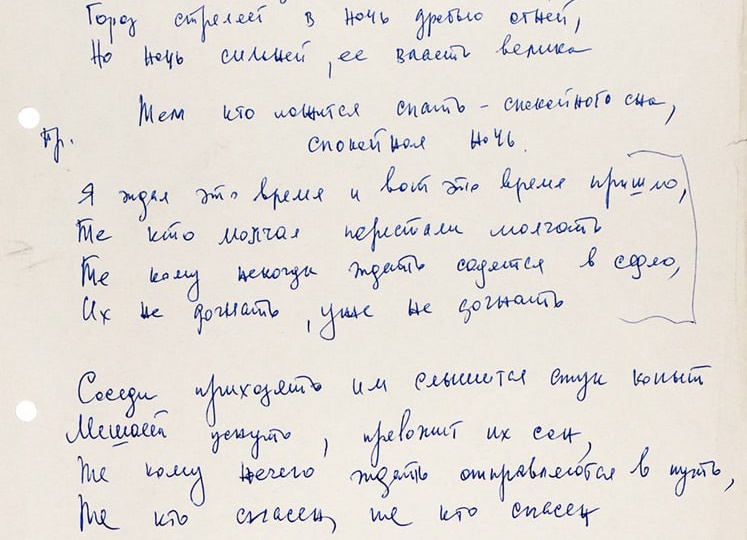 Город стреляет в ночь дробью огней,
Но ночь сильней, ее власть велика
Тем кто ложится спать - спокойного сна,
Пр.
спокойная ночь.
Я ждал это время и вот это время пришло,
Те кто молчал перестали молчать
Те кому некогда ждать садятся в седло,
Их не догнать, уже не догнать
Соседи приходят им слышится стук копыт
Мешает уснуть, тревожит их сон,
Те кому нечего ждать отправляются в путь,
Те кто спасен, те кто спасен